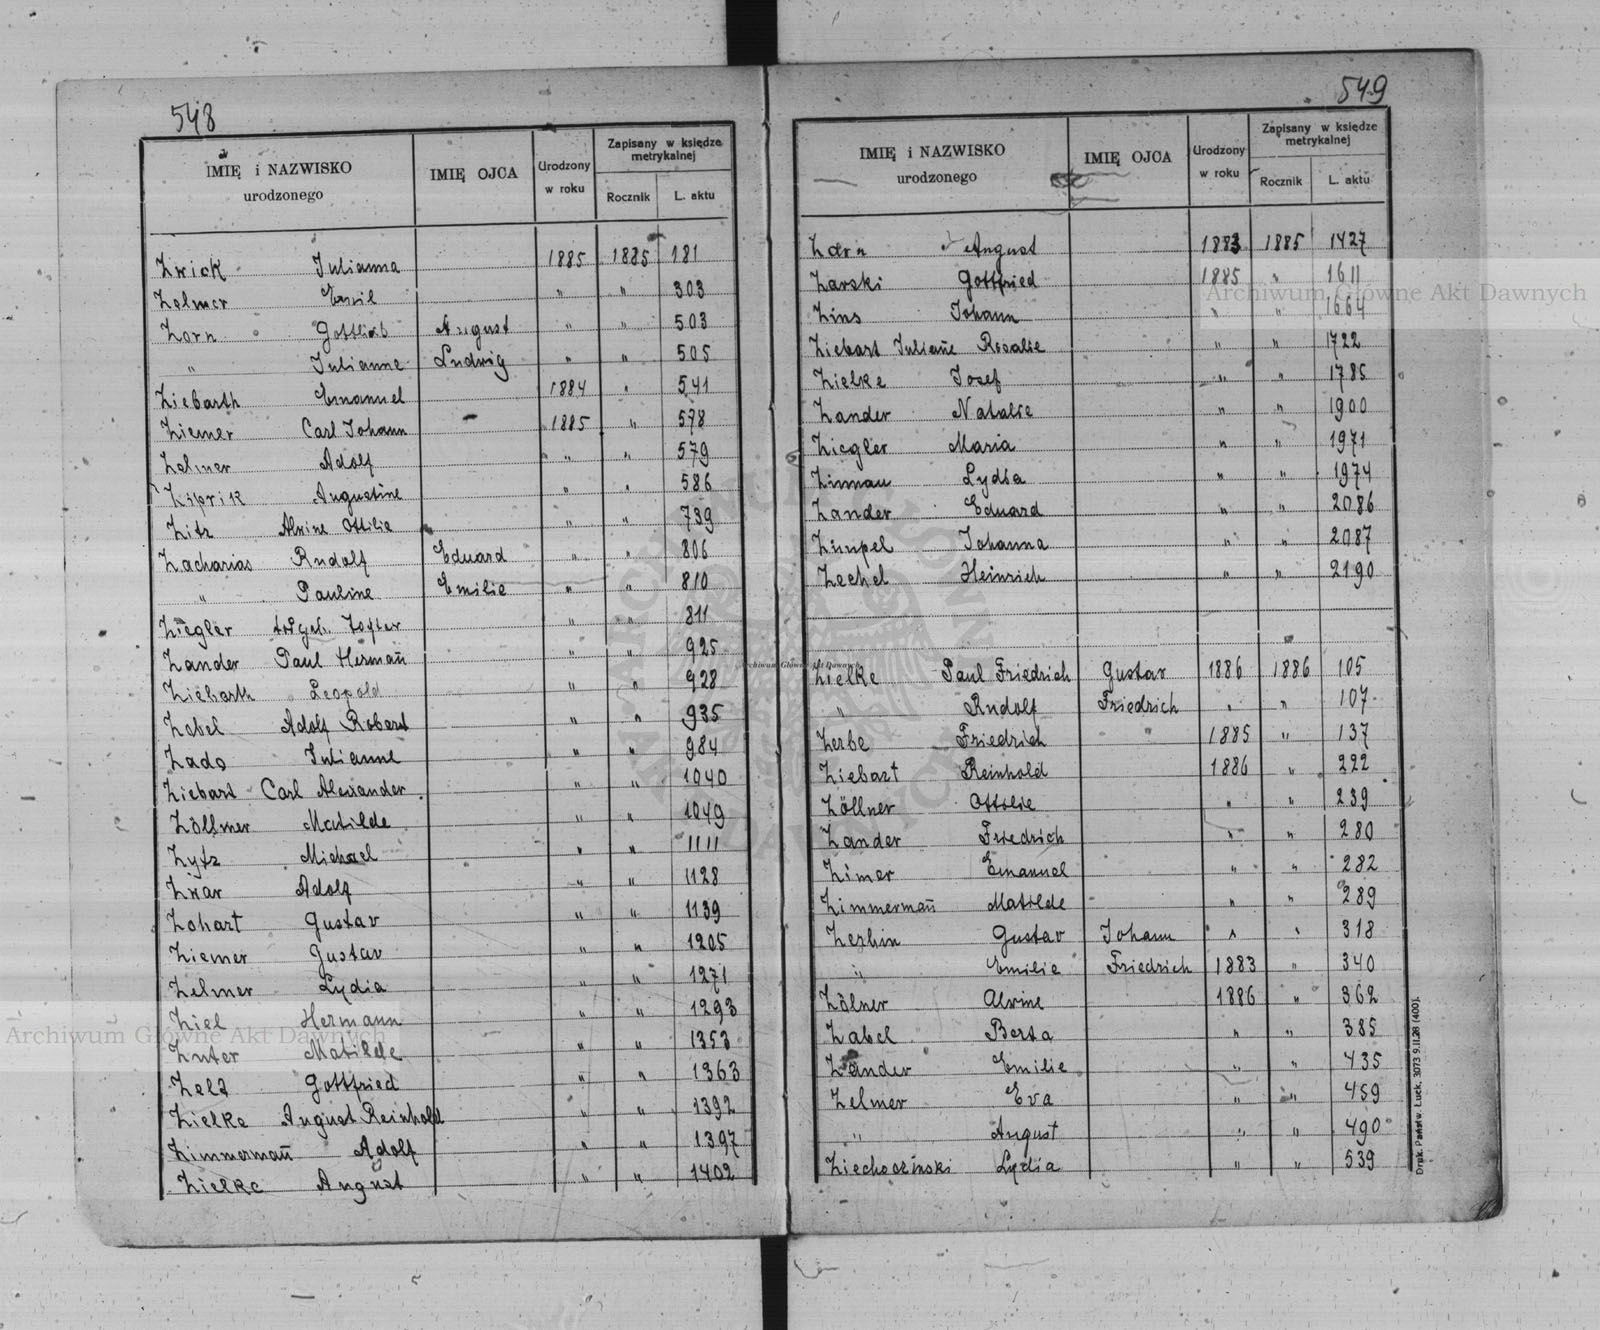 548
IMIĘ i NAZWISKO urodzonego | IMIĘ OJCA | Urodzony w roku | Zapisany w księdze metrykalnej
Rocznik | L. aktu
Zwick Julianna 1885 1885 181
Zelmer Emil " " 303
Zorn Gottlieb August " " 503
" Julianne Ludwig " " 505
Ziebarth Emanuel 1884 " 541
Ziemer Carl Johann 1885 " 578
Zelmer Adolf " " 579
Ziprik Augustine " " 586
Zitz Alvine Ottilie " " 739
Zacharias Rudolf Eduard " " 806
" Pauline Emilie " " 810
Ziegler " " 811
Zander Paul Hermañ " " 925
Ziebarth Leopold " " 928
Zabel Adolf Robert " " 935
Zado Julianne " " 984
Ziebart Carl Alexander " " 1040
Zöllmer Matilde " " 1049
Zytz Michael " " 1111
Zwar Adolf " " 1128
Zohart Gustav " " 1139
Ziemer Gustav " " 1205
Zelmer Lydia " " 1271
Ziel Hermann " " 1293
Zuter Matilde " " 1353
Zeld Gottfried " " 1363
Zielke August Reinhold " " 1392
Zimmermañ Adolf " " 1397
Zielke August " " 1402
549
IMIĘ i NAZWISKO urodzonego | IMIĘ OJCA | Urodzony w roku | Zapisany w księdze metrykalnej
Rocznik | L. aktu
Zorn August 1883 1885 1427
Zarski Gottfried 1885 " 1611
Zins Johann " " 1664
Ziebart Juliañe Rosalie " " 1722
Zielke Josef " " 1785
Zander Natalie " " 1900
Ziegler Maria " " 1971
Zinman Lydia " " 1974
Zander Eduard " " 2086
Zimpel Johanna " " 2087
Zechel Heinrich " " 2190
Zielke Paul Friedrich Gustav 1886 1886 105
" Rudolf Friedrich " " 107
Zerbe Friedrich 1885 " 137
Ziebart Reinhold 1886 " 222
Zöllner Ottilie " " 239
Zander Friedrich " " 280
Zimer Emanuel " " 282
Zimmermañ Matilde " " 289
Zerbin Gustav Johann " " 318
" Emilie Friedrich 1883 " 340
Zölner Alvine 1886 " 362
Zabel Berta " " 385
Zander Emilie " " 435
Zelmer Eva " " 459
" August " " 490
Ziechociński Lydia " " 539
Druk. Państw. Łuck. 3073 9.II.28 (400).
Archiwum Główne Akt Dawnych
Archiwum Główne Akt Dawnych
Archiwum Główne Akt Dawnych